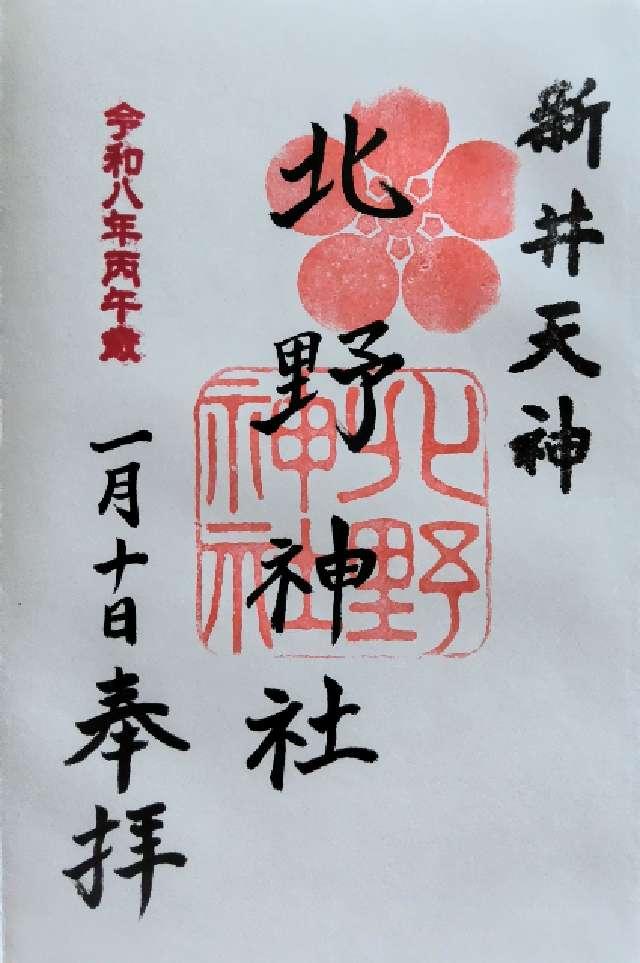 新井天神
北野神社
北野神社
令和八年丙午歳
一月十日奉拝